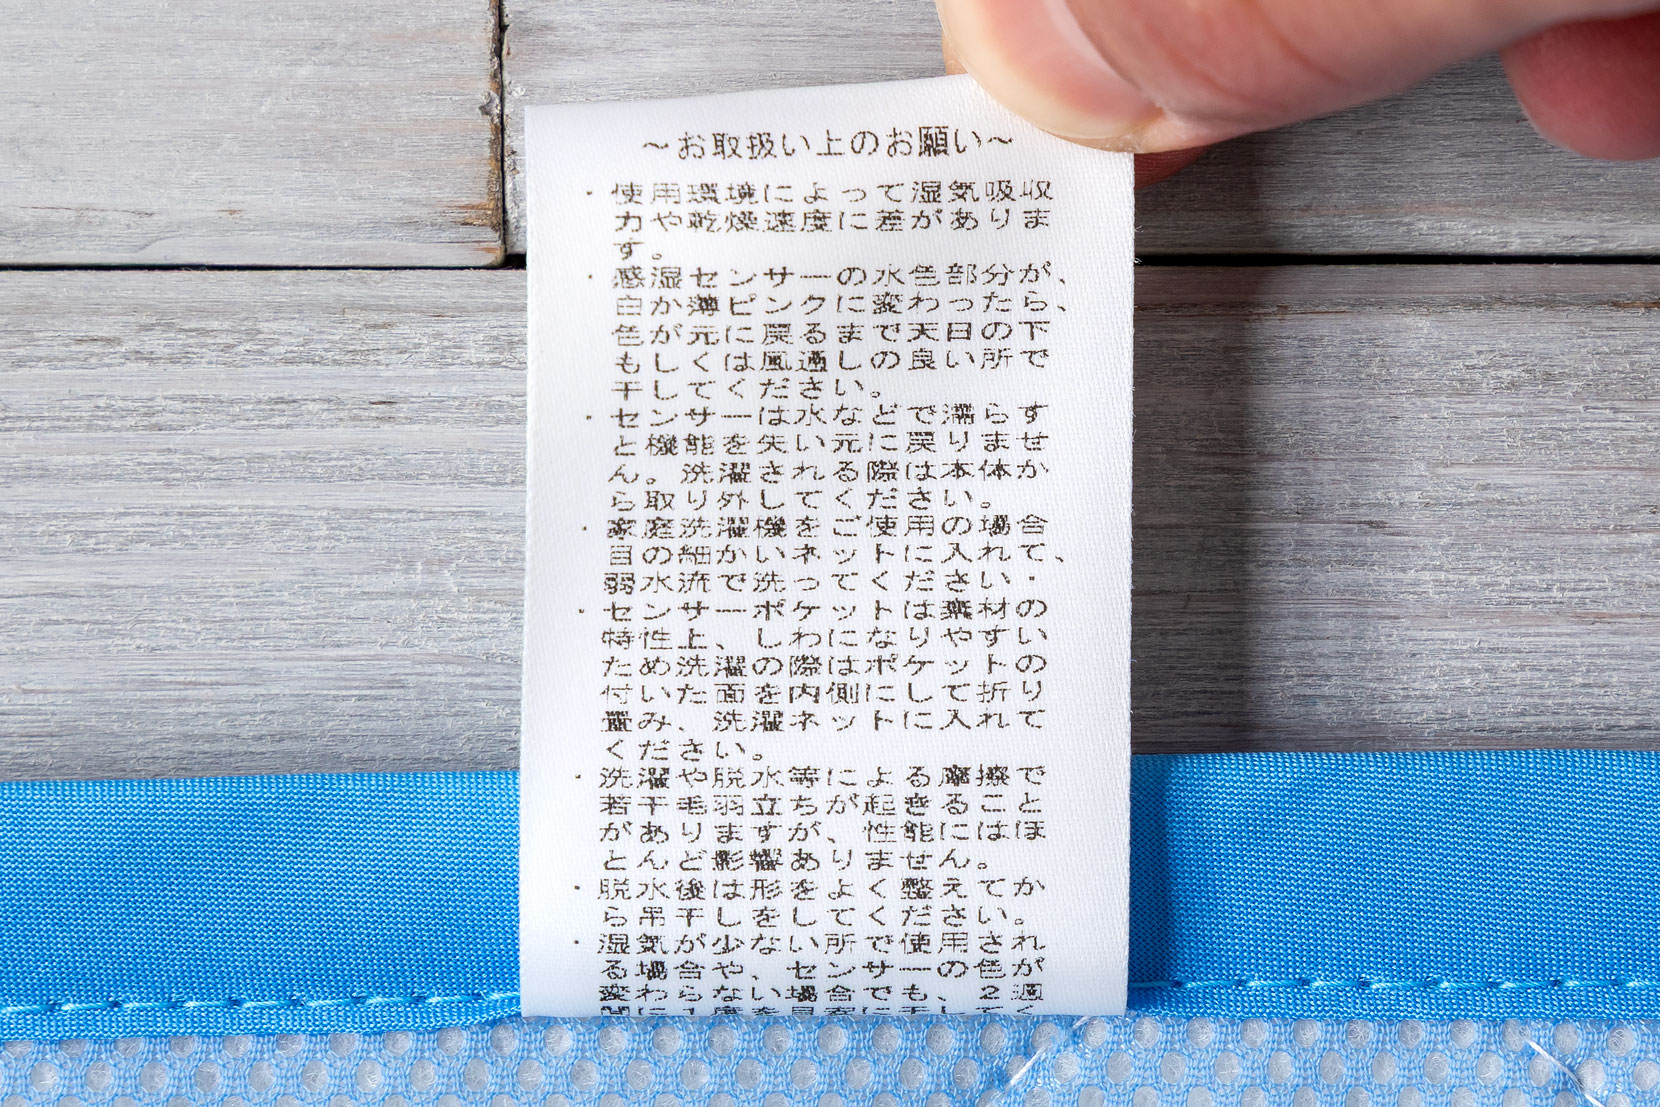 ～お取扱い上のお願い～
・使用環境によって湿気吸収
力や乾燥速度に差がありま
す。
・感湿センサーの水色部分が、
白か薄ピンクに変わったら、
色が元に戻るまで天日の下
もしくは風通しの良い所で
干してください。
・センサーは水などで濡らす
と機能を失い元に戻りませ
ん。洗濯される際は本体か
ら取り外してください。
・家庭洗濯機をご使用の場合
目の細かいネットに入れて、
弱水流で洗ってください・
・センサーポケットは素材の
特性上、しわになりやすい
ため洗濯の際はポケットの
付いた面を内側にして折り
畳み、洗濯ネットに入れて
ください。
・洗濯や脱水等による摩擦で
若干毛羽立ちが起きること
がありますが、性能にはほ
とんど影響ありません。
・脱水後は形をよく整えてか
ら吊干しをしてください。
・湿気が少ない所で使用され
る場合や、センサーの色が
変わらない場合でも、２週
間に１度を目安に干してく